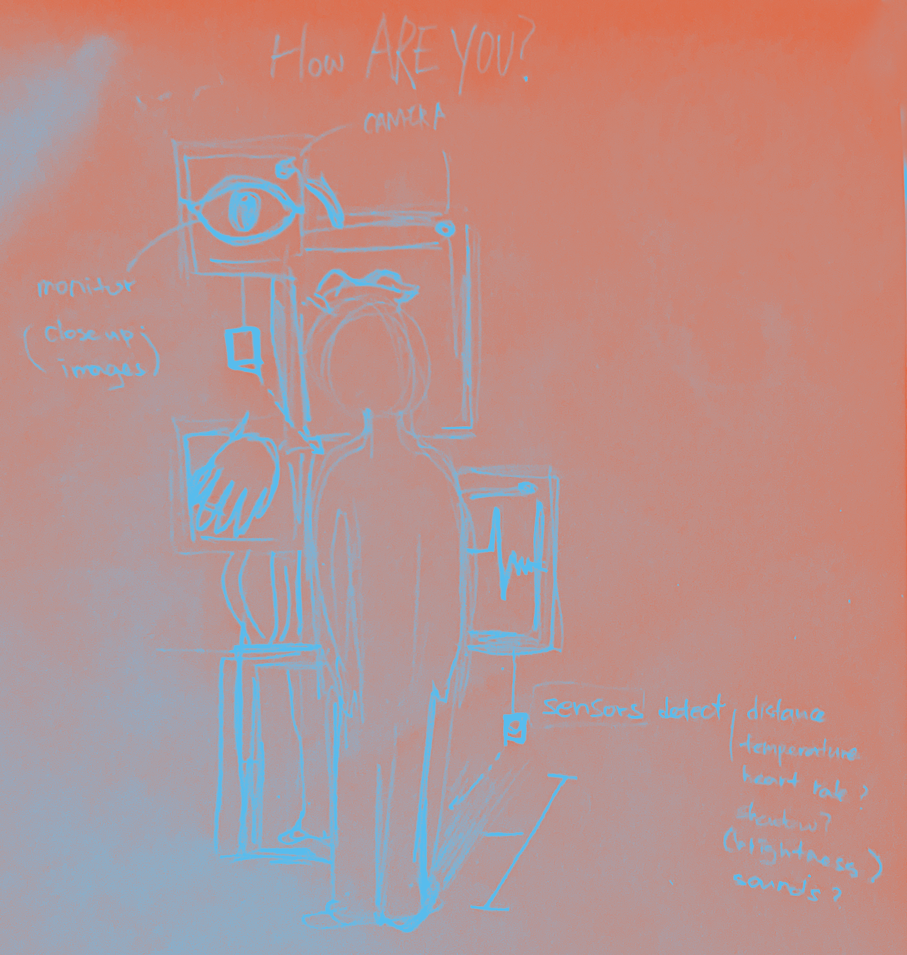 How ARE YOU?
CAMERA
monitor
(close up;
images)
sensors detect distance
temperature
heart rate?
shadow?
(brightness)
sounds?